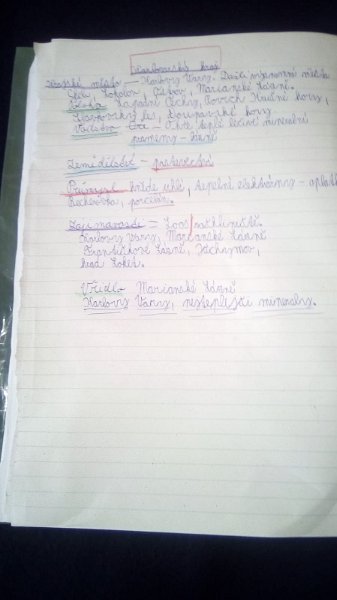 Karlovarský kraj
Krajské město - Karlovy Vary. Další významná města
Cheb, Sokolov, Ostrov, Mariánské Lázně.
Poloha západní Čechy, pohoří Krušné hory,
Slavkovský les, Doupovské hory.
Vodstvo - Ohře teplé léčivé minerální
prameny - lázně
Zemědělství - pastevectví
Průmysl hnědé uhlí, tepelné elektrárny -
Becherovka, porcelán.
Zajímavosti = Loos
Karlovy Vary, Mariánské Lázně
Františkovy Lázně, Jáchymov,
hrad Loket.
Vřídlo Mariánské Lázně
Karlovy Vary, nejteplejší minerály.